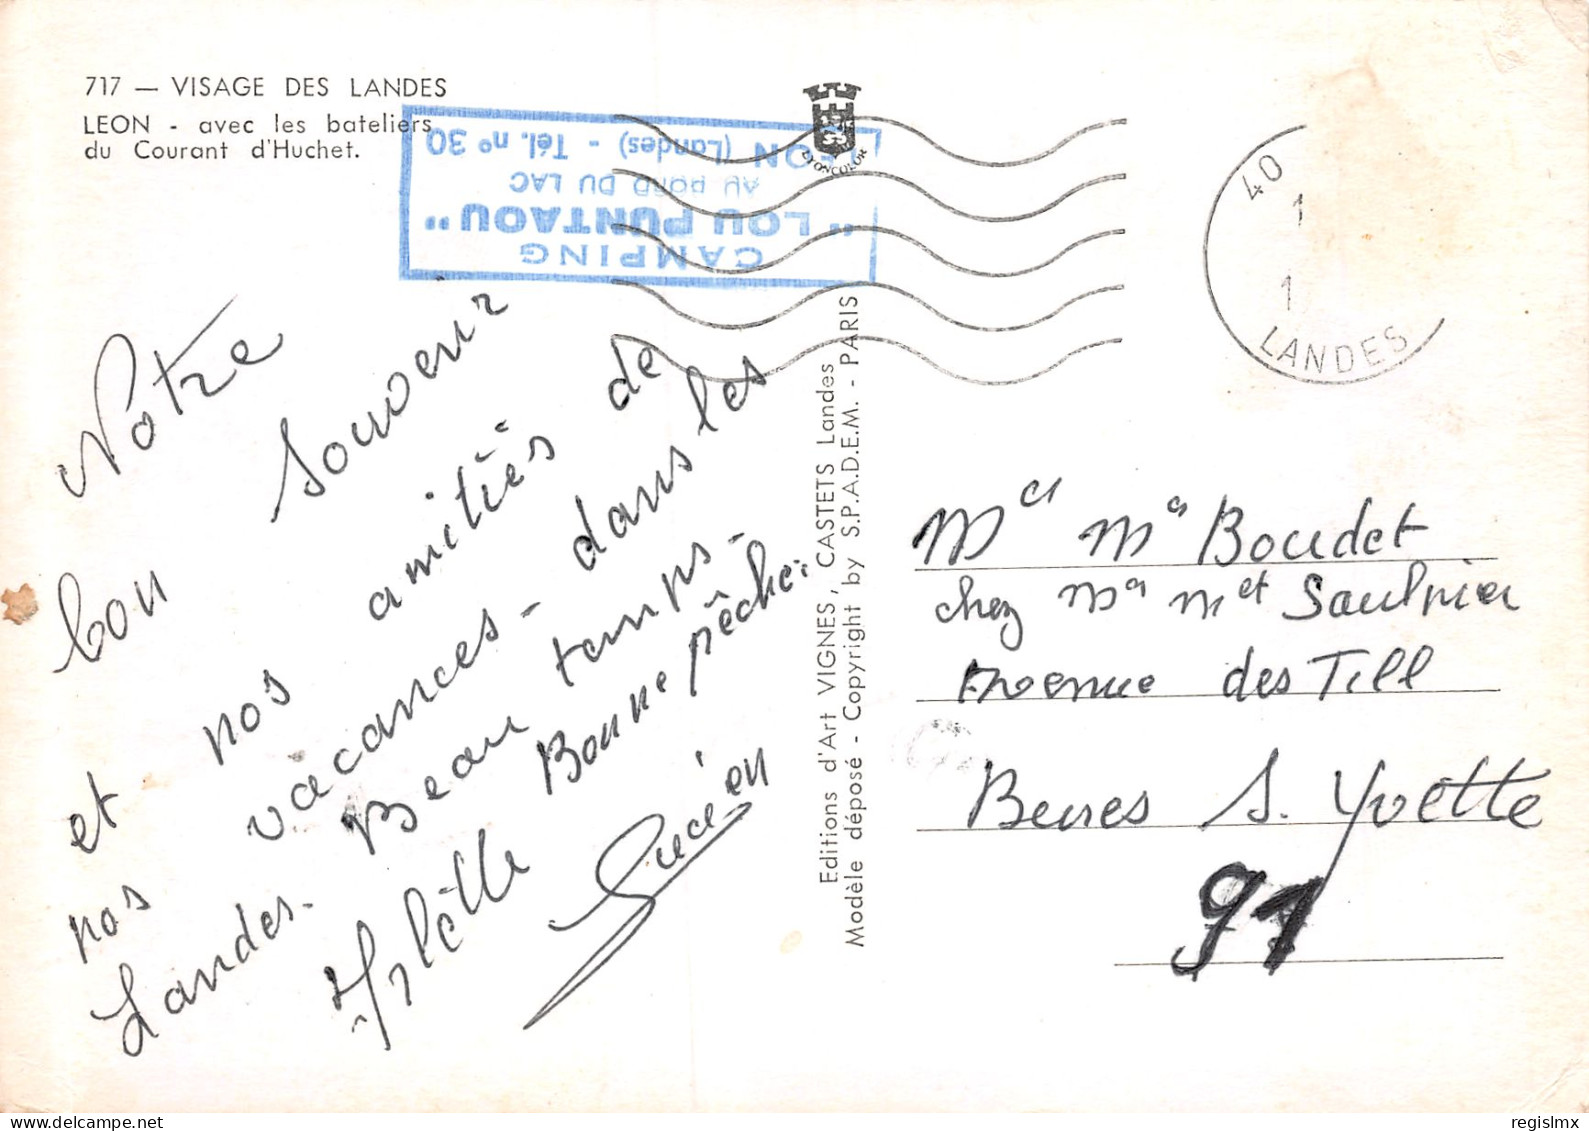 717 — VISAGE DES LANDES
LEON - avec les bateliers
du Courant d'Huchet.
CAMPING
"LOU PUNTAOU"
AU BORD DU LAC
LEON (Landes) - Tél. n° 30
LYONCOLOR
40
1
1
LANDES
Notre
bon souvenir
et nos amitiés de
nos vacances - dans les
Landes. Beau temps.
Bonne pêche.
Arlette
Lucien
Editions d'Art VIGNES, CASTETS Landes
Modèle déposé - Copyright by S.P.A.D.E.M. - PARIS
Boudet
chez Saulnier
Avenue des Till
Beures S. Yvette
91
regislmx